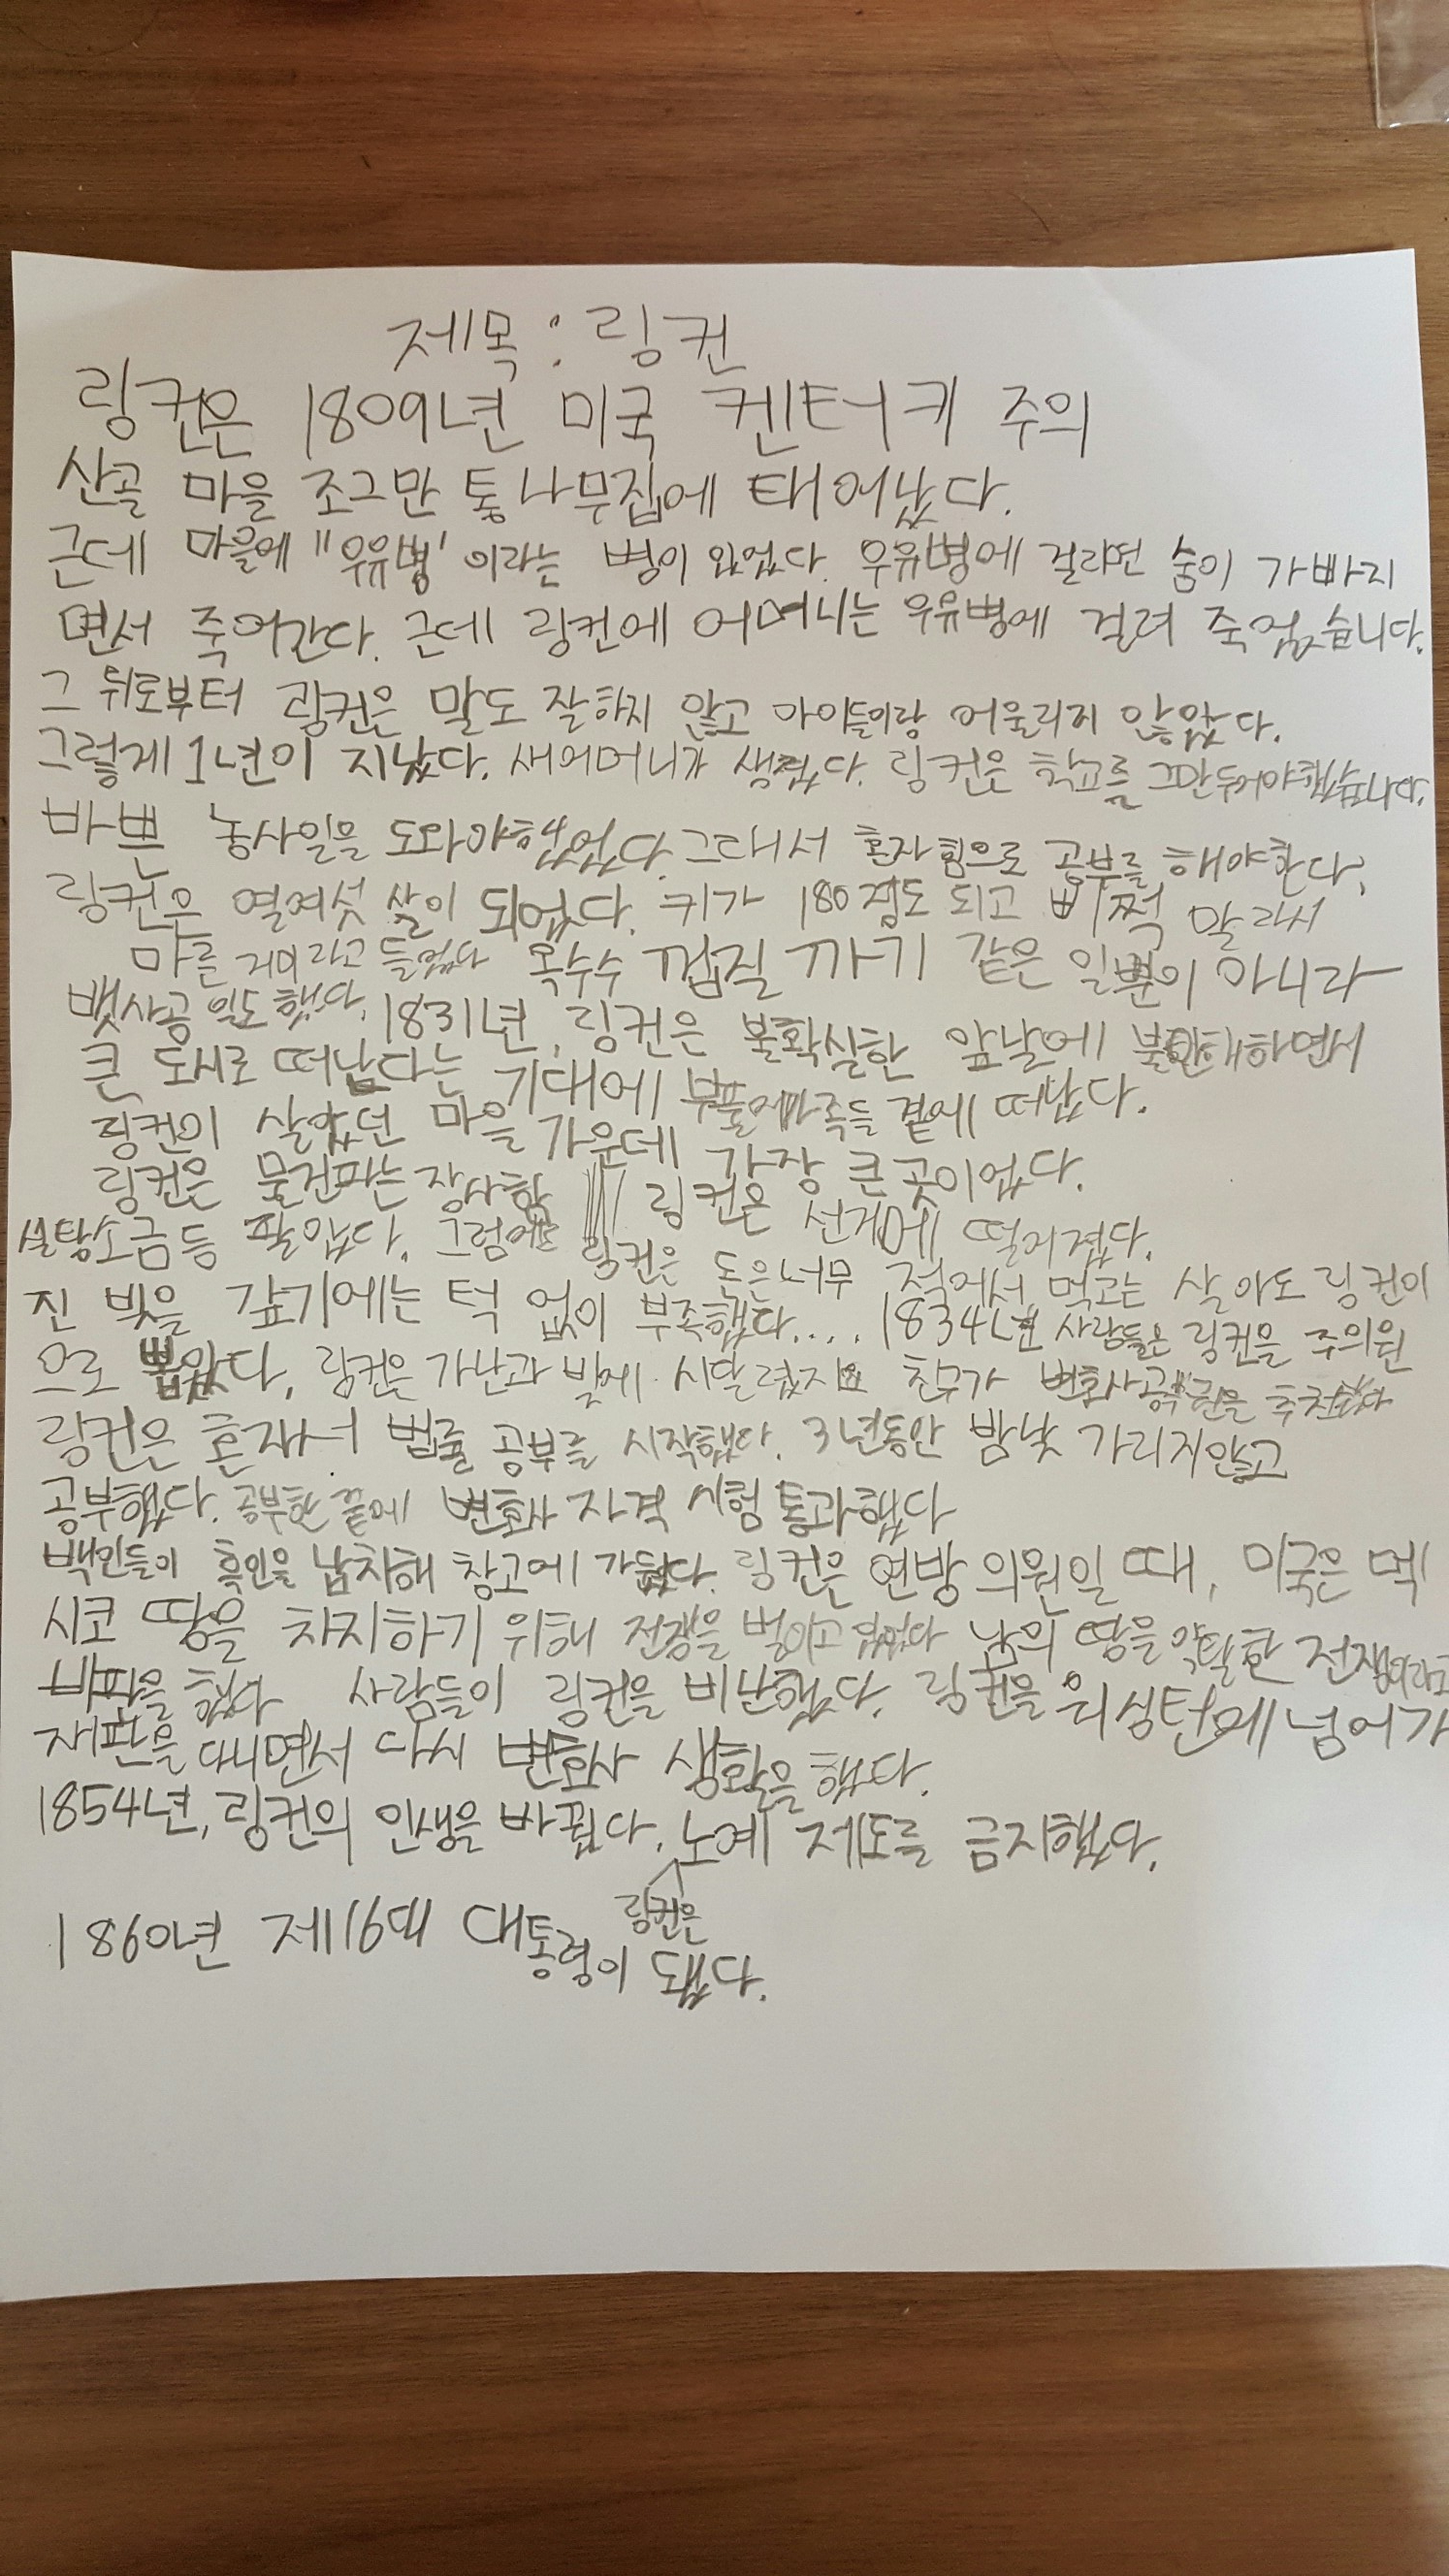 제목 : 링컨
링컨은 1809년 미국 켄터키 주의
산골 마을 조그만 통나무집에 태어났다.
근데 마을에 "우유병'이라는 병이 있었다. 우유병에 걸리면 숨이 가빠지
면서 죽어간다. 근데 링컨에 어머니는 우유병에 걸려 죽었습니다.
그 뒤로부터 링컨은 말도 잘하지 않고 아이들이랑 어울리지 않았다.
그렇게 1년이 지났다. 새어머니가 생겼다. 링컨은 학교를 그만두어야했습니다.
바쁜 농사일을 도와야했었다. 그래서 혼자힘으로 공부를 해야한다.
링컨은 열여섯 살이 되었다. 키가 180 정도 되고 비쩍 말라서
마른 거미라고 들었다 옥수수 껍질 까기 같은 일뿐이 아니라
뱃사공 일도 했다. 1831년, 링컨은 불확실한 앞날에 불안해하면서
큰 도시로 떠난다는 기대에 부풀어 가족들 곁에 떠났다.
링컨이 살았던 마을 가운데 가장 큰 곳이었다.
링컨은 물건파는 장사함 링컨은 선거에 떨어졌다.
설탕소금등 팔았다. 그럼에도 링컨은 돈은너무 적어서 먹고는 살아도 링컨이
진 빚을 갚기에는 턱 없이 부족했다.... 1834년 사람들은 링컨을 주의원
으로 뽑았다. 링컨은 가난과 빚에 시달렸지요 친구가 변호사공부를 추천했다
링컨은 혼자서 법률 공부를 시작했다. 3년동안 밤낮 가리지않고
공부했다. 공부한 끝에 변호사 자격 시험 통과했다
백인들이 흑인을 납치해 창고에 가뒀다. 링컨은 연방 의원일 때, 미국은 멕
시코 땅을 차지하기 위해 전쟁을 벌이고 있었다 남의 땅을 약탈한 전쟁이라고
비판을 했다 사람들이 링컨을 비난했다. 링컨을 워싱턴에 넘어가
재판을 다니면서 다시 변호사 생활을 했다.
1854년, 링컨의 인생을 바꿨다. 노예 제도를 금지했다.
링컨은
1860년 제16대 대통령이 됐다.